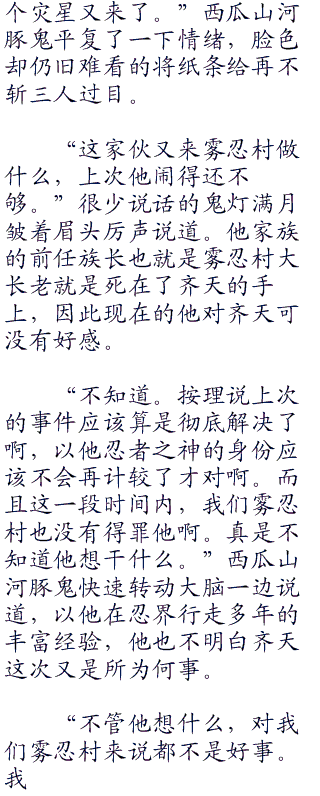 个灾星又来了。”西瓜山河
豚鬼平复了一下情绪，脸色
却仍旧难看的将纸条给再不
斩三人过目。
“这家伙又来雾忍村做
什么，上次他闹得还不
够。”很少说话的鬼灯满月
皱着眉头厉声说道。他家族
的前任族长也就是雾忍村大
长老就是死在了齐天的手
上，因此现在的他对齐天可
没有好感。
“不知道。按理说上次
的事件应该算是彻底解决了
啊，以他忍者之神的身份应
该不会再计较了才对啊。而
且这一段时间内，我们雾忍
村也没有得罪他啊。真是不
知道他想干什么。”西瓜山
河豚鬼快速转动大脑一边说
道，以他在忍界行走多年的
丰富经验，他也不明白齐天
这次又是所为何事。
“不管他想什么，对我
们雾忍村来说都不是好事。
我